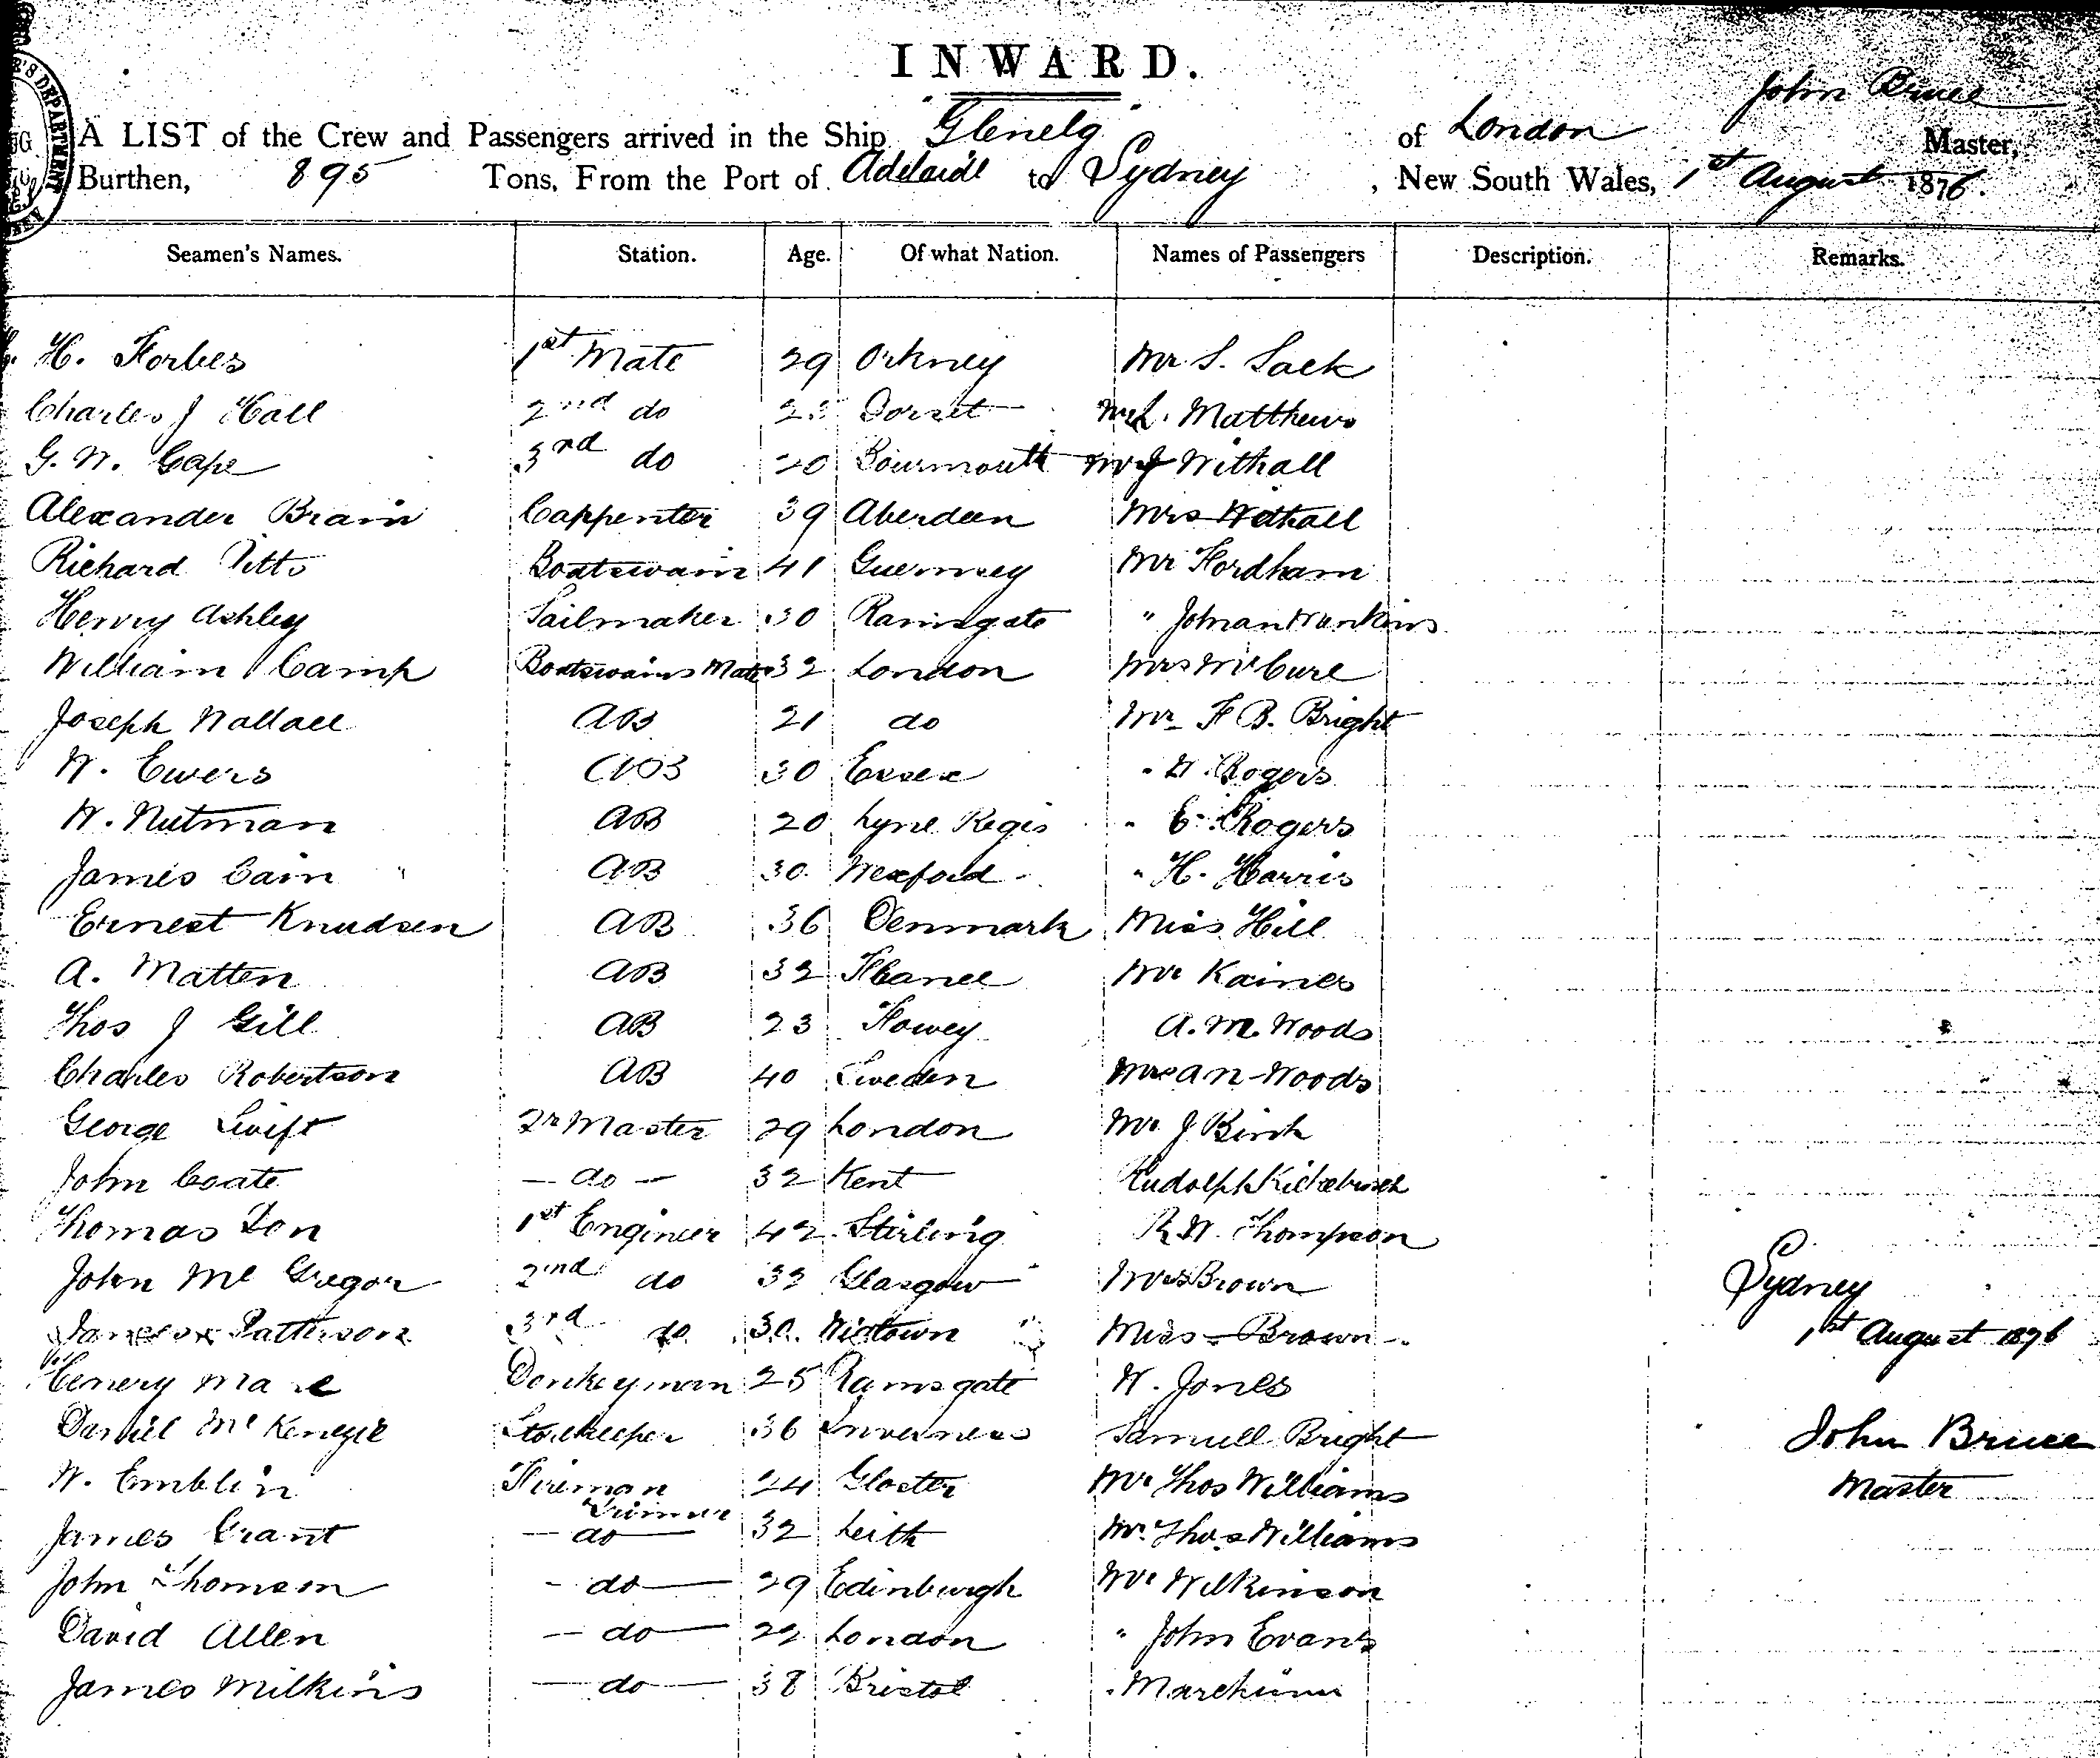 INWARD.
John Bruce
A LIST of the Crew and Passengers arrived in the Ship "Glenelg" of London Master,
Burthen, 895 Tons, From the Port of Adelaide to Sydney, New South Wales, 1st August 1876.
Seamen's Names. Station. Age. Of what Nation. Names of Passengers Description. Remarks.
H. Forbes 1st Mate 29 Orkney Mr S. Sack
Charles J Hall 2nd do 23 Dorset Matthews
G. W. Cape 3rd do 20 Bournmouth Withall
Alexander Brain Cappenter 39 Aberdeen Mrs Withall
Richard Boatswain 41 Guernsey Mr Fordham
Henry Ashley Sailmaker 30 Ramsgate "
William Camp Boatswains Mate 32 London Mrs McCure
Joseph Wallace AB 21 do Mr F B. Bright
W. Ewers AB 30 Essex " Rogers
W. Nutman AB 20 Lyne Regis " E. Rogers
James Cain AB 30 Wexford " H. Harris
Ernest Knudsen AB 36 Denmark Miss Hill
A. Matten AB 32 Mr Kaines
Thos J Gill AB 23 Fowey A. M. Woods
Charles Robertson AB 40 Sweden Woods
George Swift Qr Master 29 London Mr J Birch
John Coate — do — 32 Kent Rudolph
Thomas Don 1st Engineer 42 Stirling R. W. Thompson
John McGregor 2nd do 33 Glasgow Mrs Brown
Sydney
Patterson 3rd do 30 Wigtown Miss Brown
1st August 1876
Henery Ramsgate Donkeyman 25 W. Jones
Daniel McKenzie Storekeeper 36 Inverness Samuell Bright
John Bruce
W. Emblin Fireman 24 Gloster Mr Thos Williams
Master
Trimmer
James Grant — do — 32 Leith Mr. Thos Williams
John Thomson - do — 29 Edinburgh Mr Wilkinson
David Allen — do — 22 London " John Evans
James Milkins — do — 38 Bristol